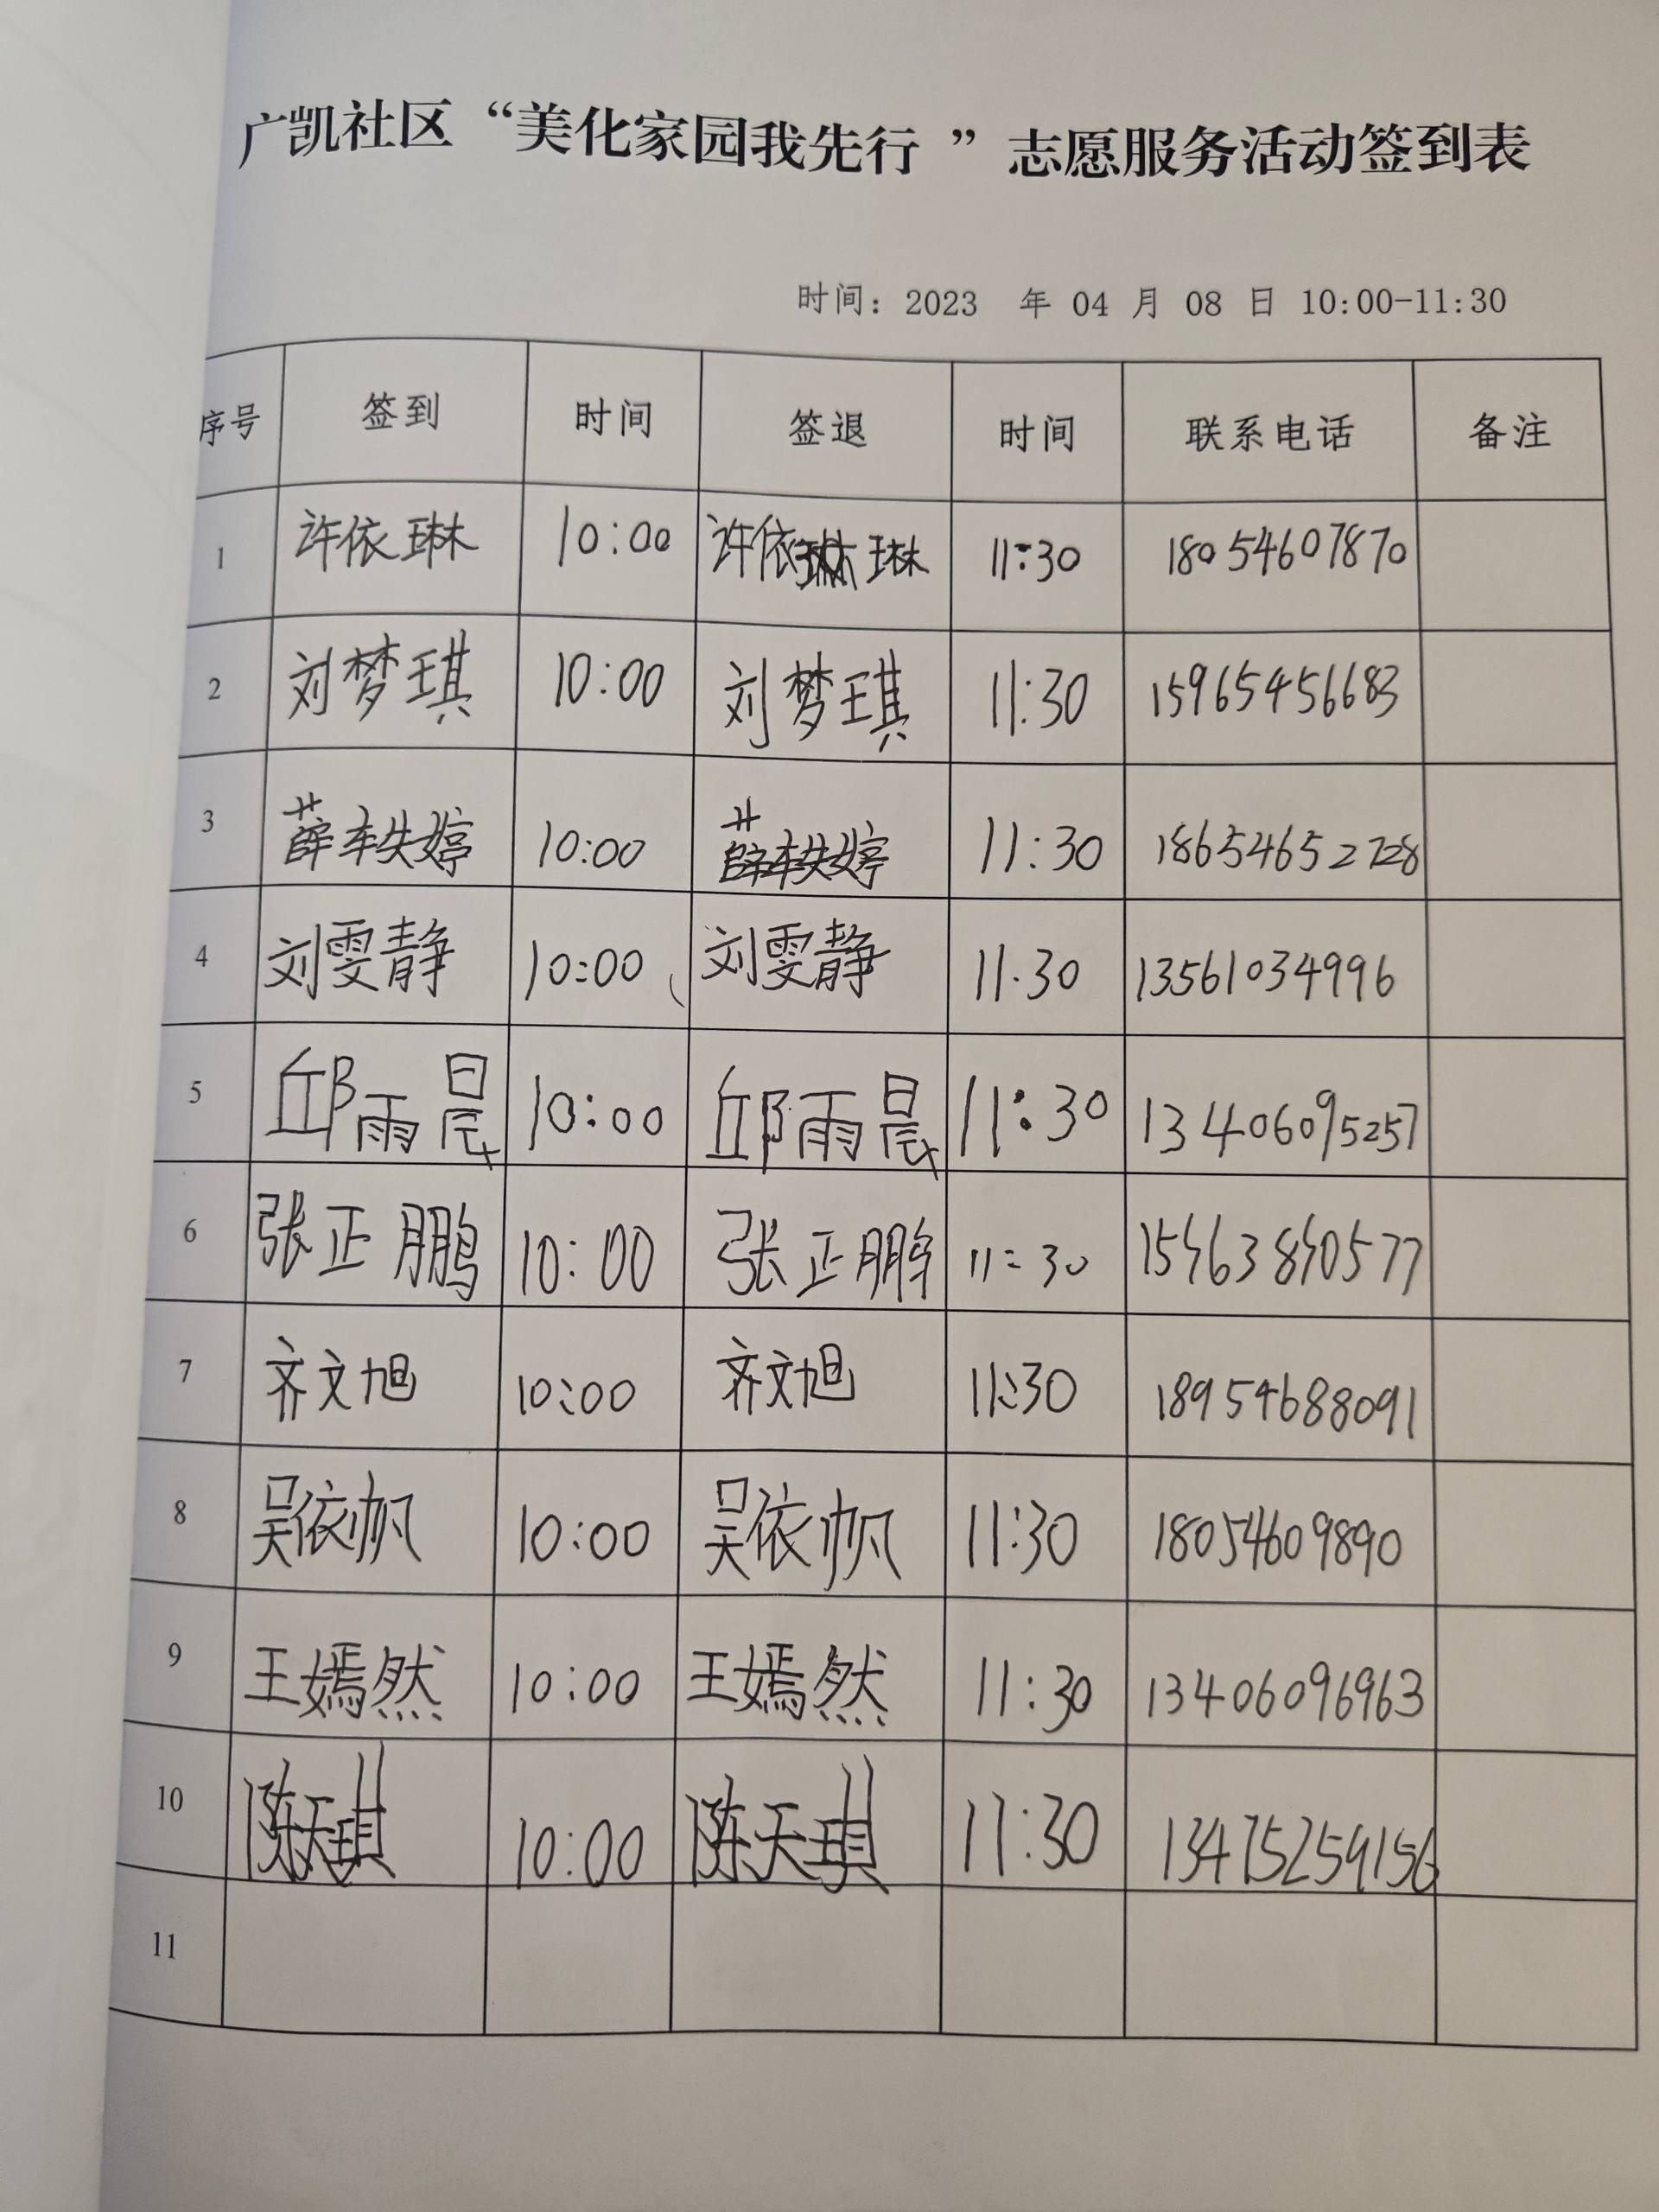 广凯社区“美化家园我先行 ”志愿服务活动签到表
时间：2023 年 04 月 08 日 10:00-11:30
序号 签到 时间 签退 时间 联系电话 备注
1 许依琳 10:00 许依琳 11:30 18054607870
2 刘梦琪 10:00 刘梦琪 11:30 15965456683
3 薛轶婷 10:00 薛轶婷 11:30 18654652728
4 刘雯静 10:00 刘雯静 11:30 13561034996
5 邱雨晨 10:00 邱雨晨 11:30 13406095257
6 张正鹏 10:00 张正鹏 11:30 15463840577
7 齐文旭 10:00 齐文旭 11:30 18954688091
8 吴依帆 10:00 吴依帆 11:30 18054609890
9 王嫣然 10:00 王嫣然 11:30 13406096963
10 陈天琪 10:00 陈天琪 11:30 13475259156
11